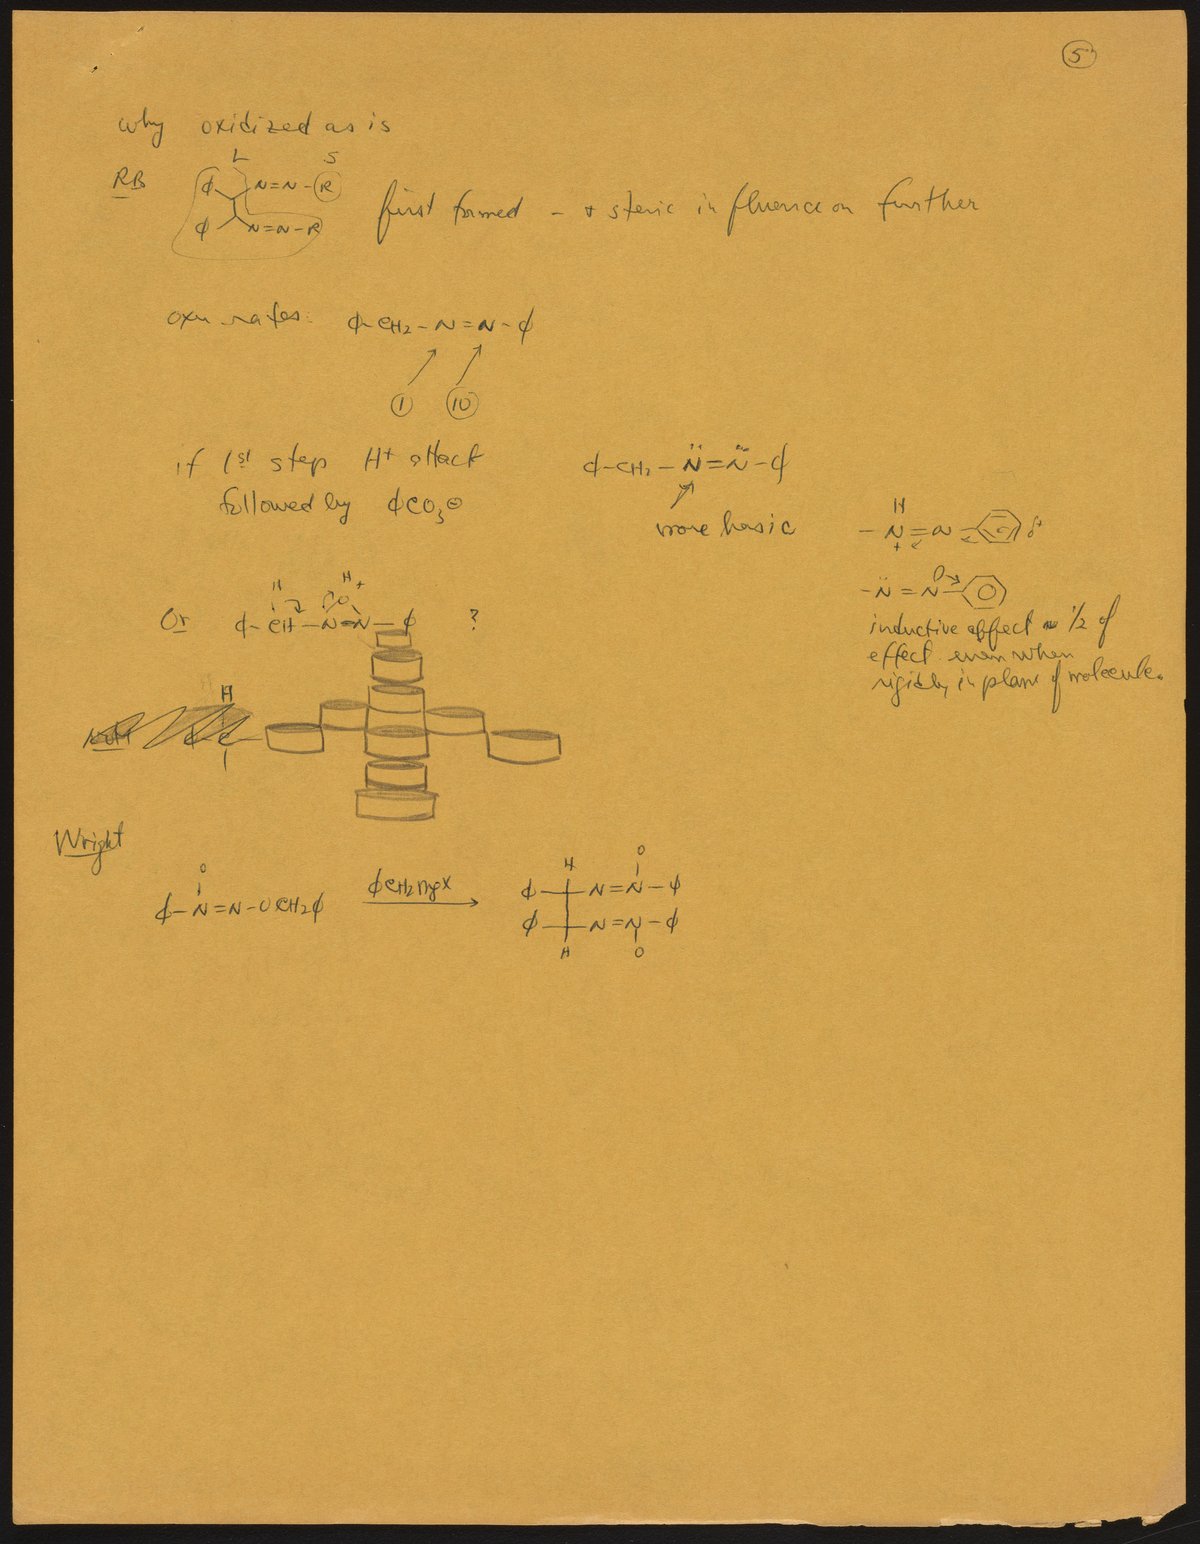 5
why oxidized as is
L S
RB ϕ N=N-R
ϕ N=N-R
first formed - + steric influence on further
oxn rates: ϕ-CH2-N=N-ϕ
1 10
if 1st step H+ attack
followed by ϕCO3⊖
ϕ-CH2-N̈=N̈-ϕ
more basic
H
-N=N- δ+
+
-N̈=N-
inductive effect ~ 1/2 of
effect even when
rigidly in plane of molecule.
H H+
O
Or ϕ-CH-N=N-ϕ ?
H
C
Wright
O
ϕ-N=N-OCH2ϕ
ϕCH2MgX
H O
ϕ N=N-ϕ
ϕ N=N-ϕ
H O